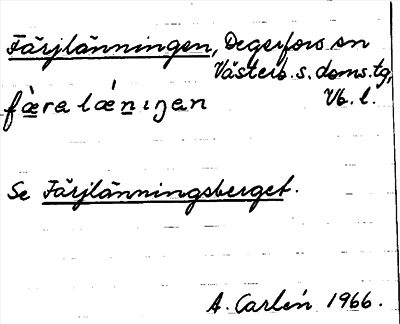 Färjlänningen, Degerfors sn
Västerb. s. doms. tg,
fæ̀ra lǽnıŋen Vb. l.
Se Färjlänningsberget.
A. Carlén 1966.